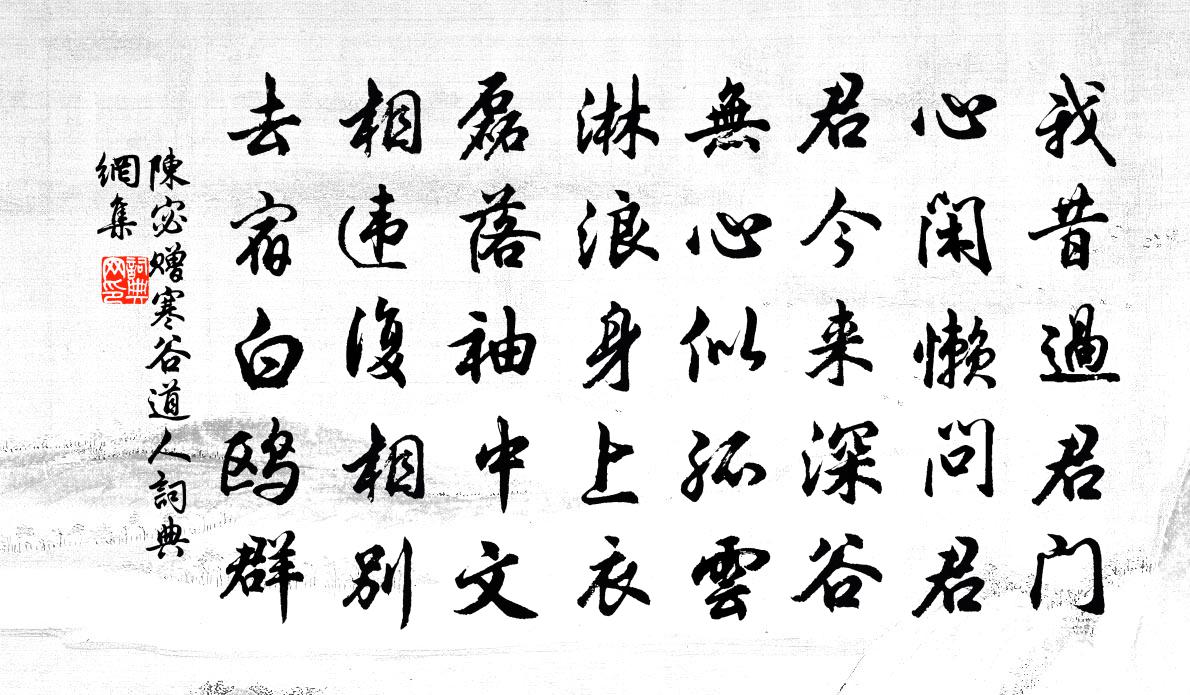 我昔過君门
心閑懶问君
君今来深谷
無心似孤雲
淋浪身上衣
磊落袖中文
相违復相别
去宿白鸥群
陳宓赠寒谷道人詞典
網集
詞典